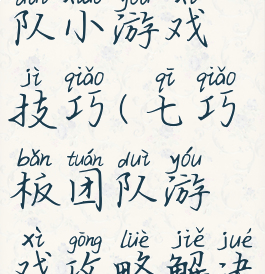 duì xiǎo yóu xì
队小游戏
jì qiǎo qī qiǎo
技巧(七巧
bǎn tuán duì yóu
板团队游
xì gōng lüè jiě jué
戏攻略解决